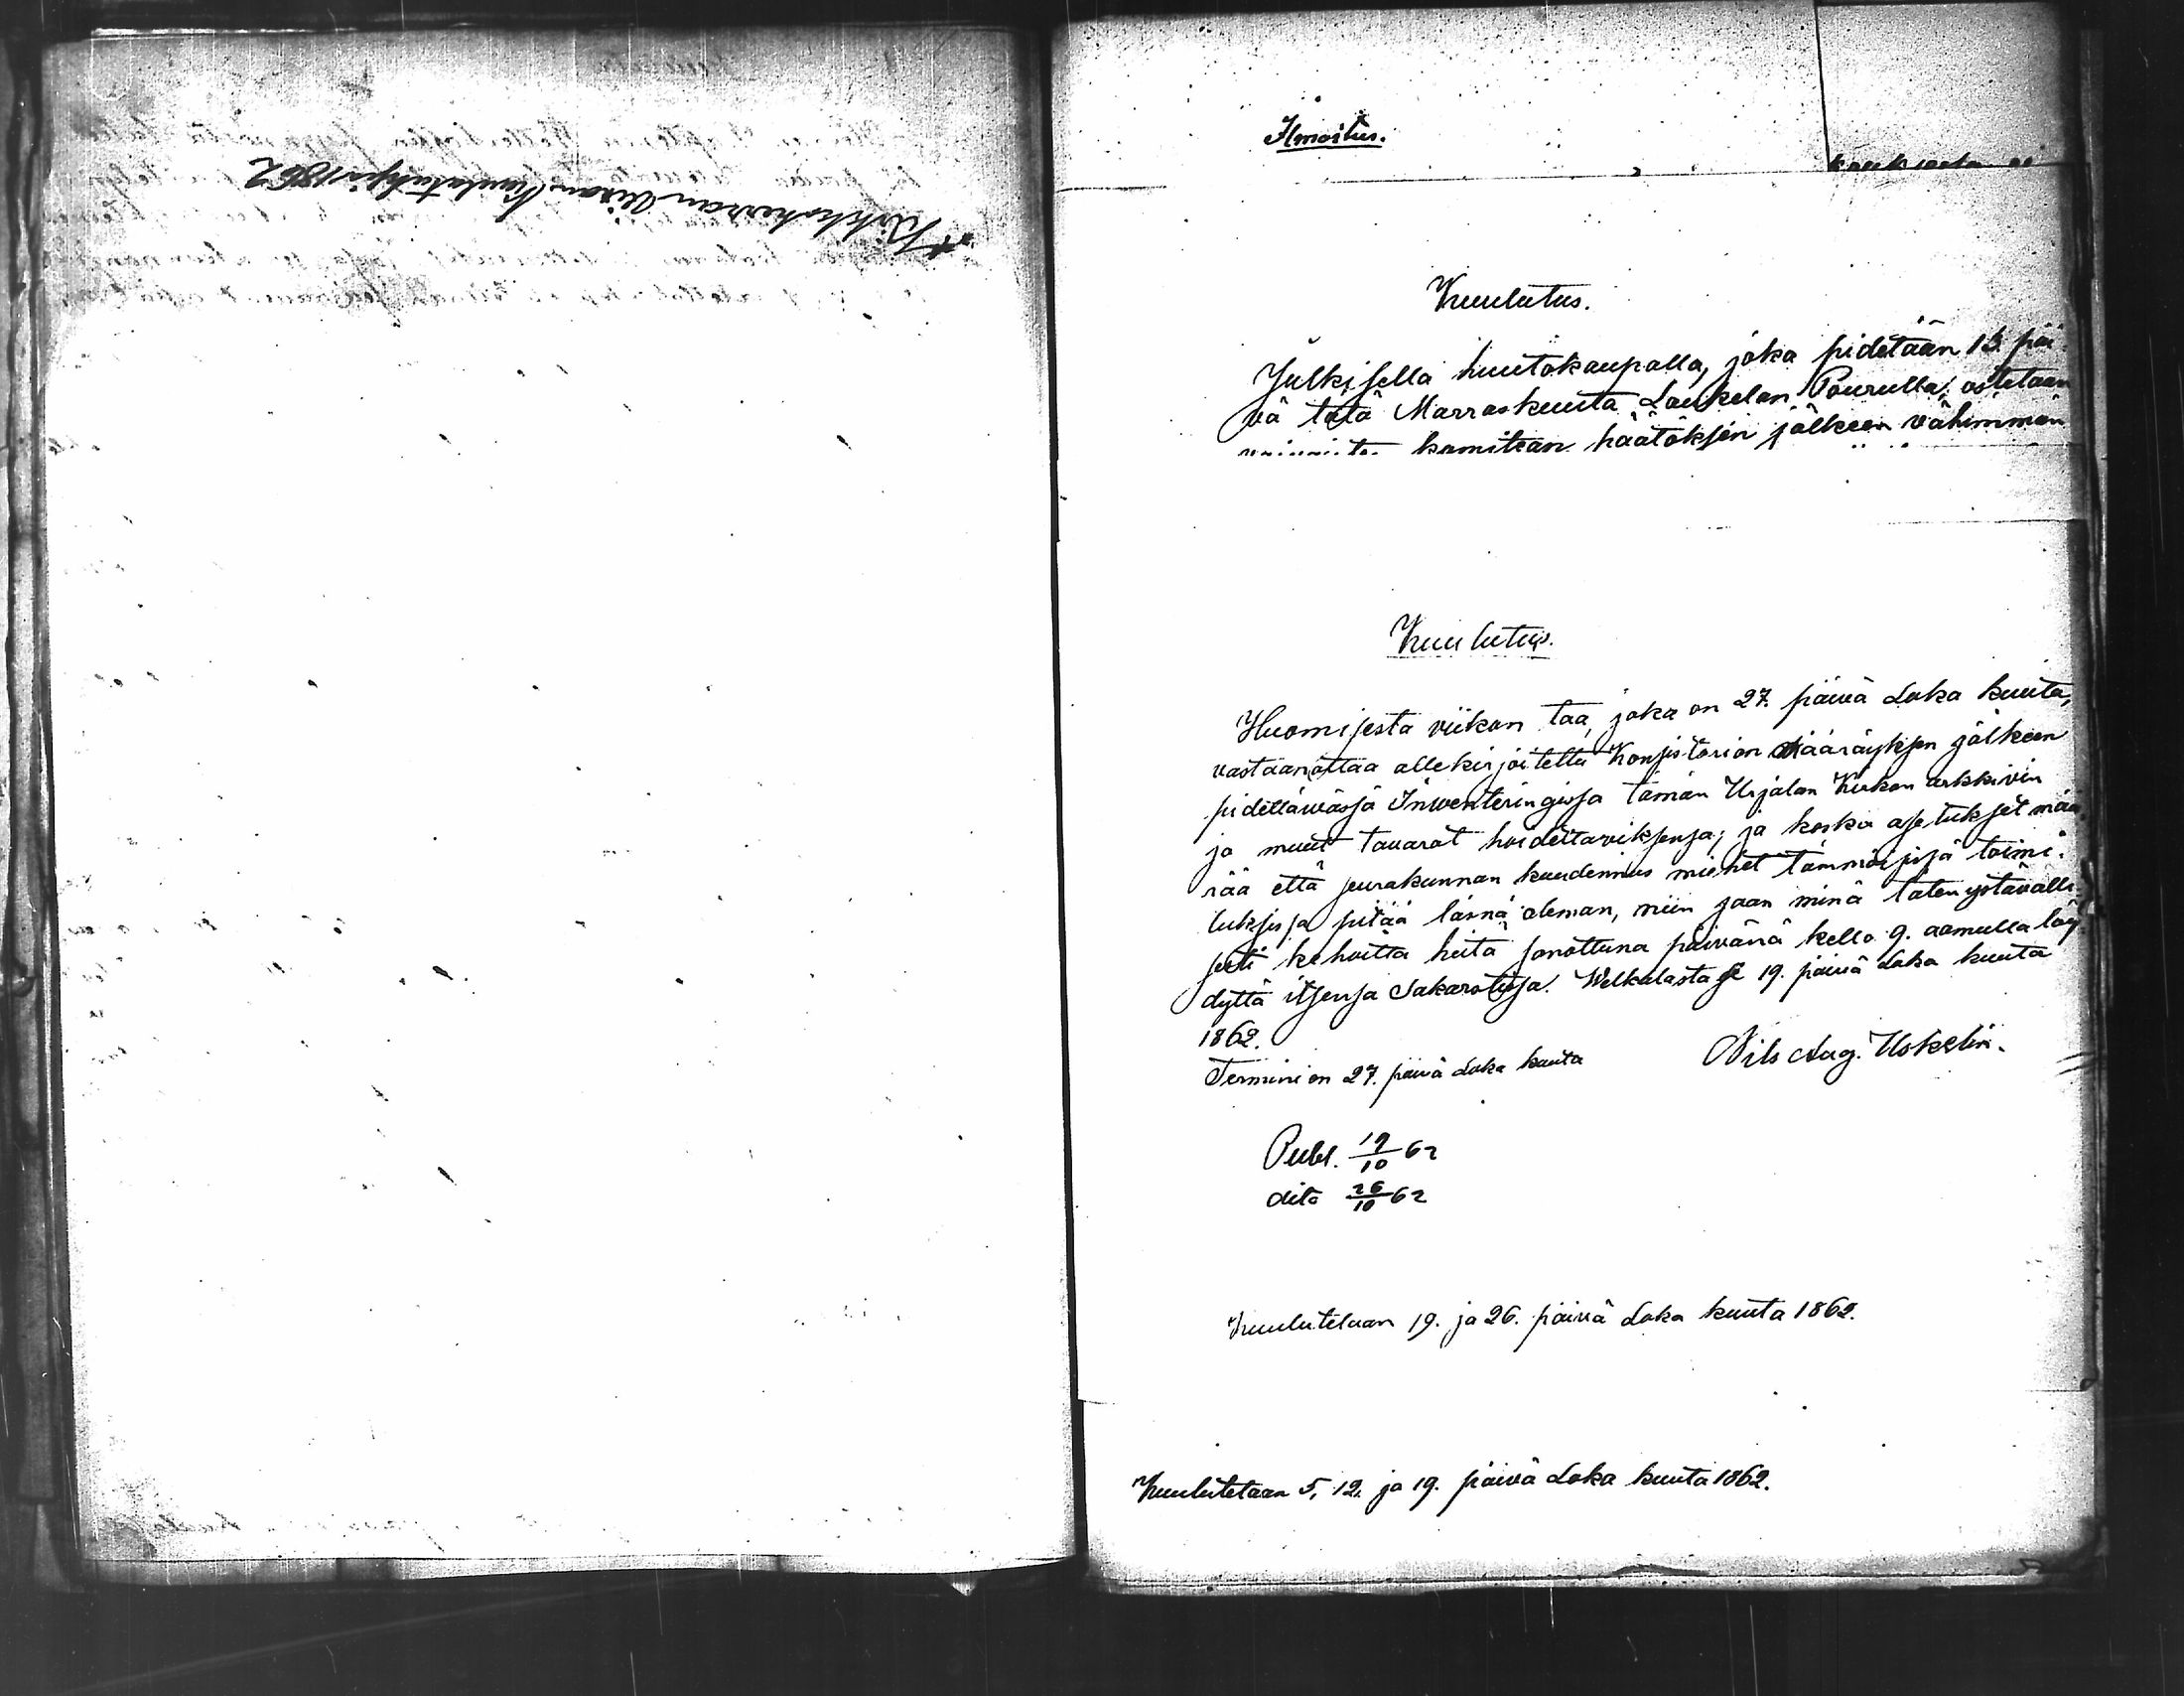 Kirkkoherran Wiran Kuulutuksia 1862
Ilmoitus.
Kuulutus.
Julkisella huutokaupalla, joka pidetään 13. päi-
vä tätä Marraskuuta Laukelan Pourulla, ostetaan
komitean päätöksen jälkeen vähimmän
Kuulutus.
Huomisesta viikon taa, joka on 27. päivä Loka kuuta,
vastaanottaa allekirjoitettu Konsistorion Määräyksen jälkeen
pidettäwässä Inwenteringissa tämän Urjalan Kirkon arkkivin
ja muut tavarat hoidettaviksensa; ja koska asetukset mää
rää että seurakunnan kuudennus miehet tämmöisissä toimi-
tuksissa pitää läsnä oleman, niin saan minä täten ystävälli
sesti kehoitta heitä sanottuna päivänä kello 9. aamulla löy
dyttä itsensä Sakarstissa. Welkalasta se 19. päivä Loka kuuta
1862.
Termini on 27. päivä Loka kuuta
Nils Aug. Uskelin.
Publ. 19/10 62
dito 26/10 62
Kuulutetaan 19. ja 26. päivä Loka kuuta 1862.
Kuulutetaan 5, 12. ja 19. päivä Loka kuuta 1862.